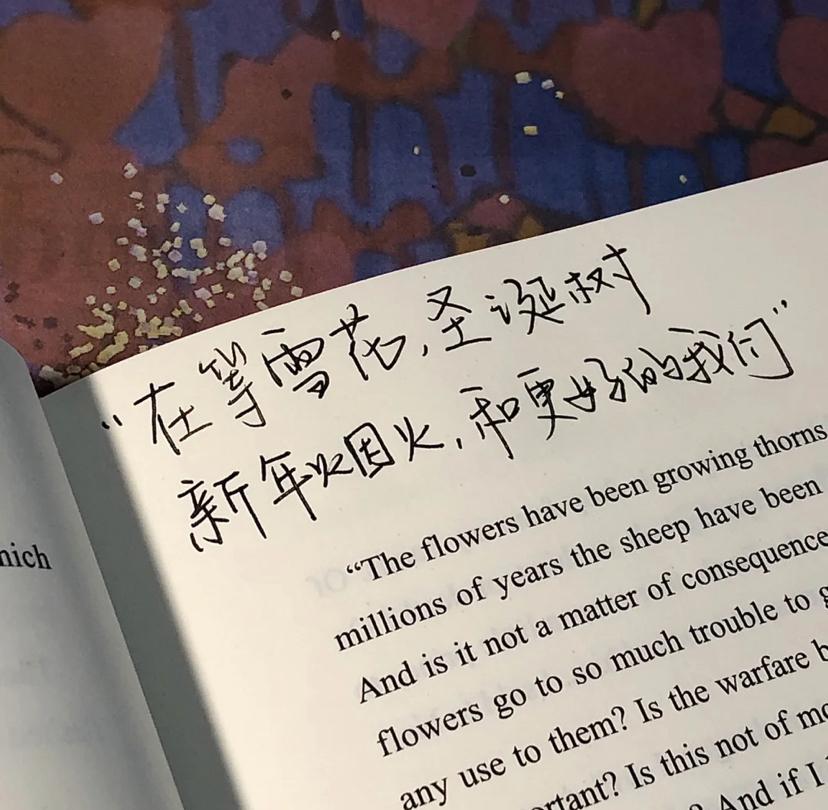 “在等雪花,圣诞树
新年烟火,和更好的我们”
“The flowers have been growing thorns
millions of years the sheep have been
And is it not a matter of consequence
flowers go to so much trouble to g
any use to them? Is the warfare b
ortant? Is this not of mo
And if I
hich